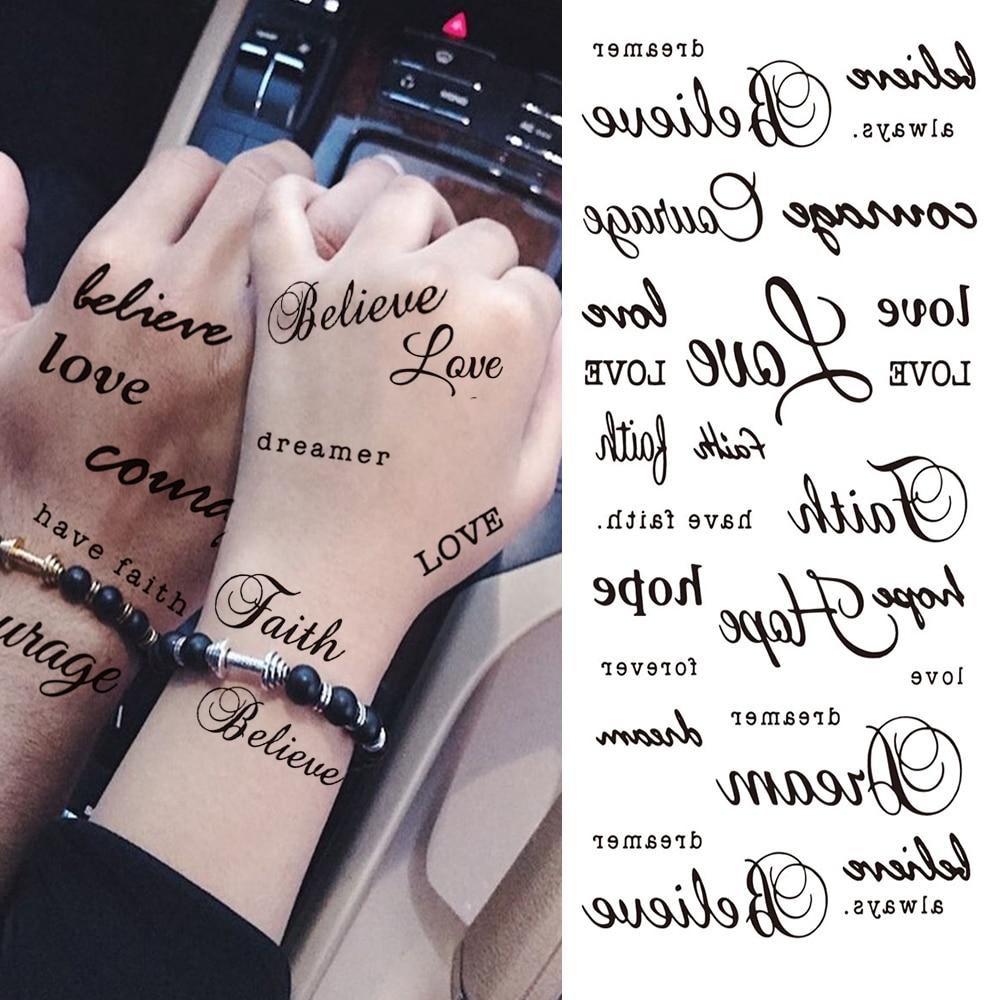 believe
love
coura
have faith
urage
Believe
Love
dreamer
LOVE
Faith
Believe
MENU
dreamer
Believe
believe
always.
Courage courage
love
LOVE
Love
love
LOVE
faith faith
have faith.
Faith
hope Hope hope
forever
love
dream
dreamer
Dream
dreamer
Believe
believe
always.